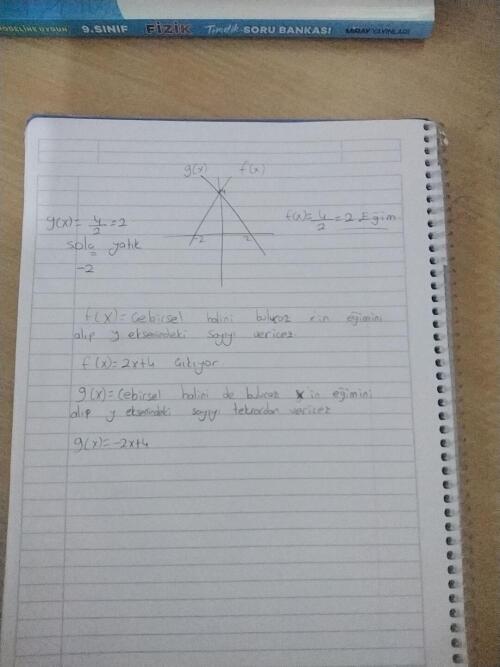 MODELİNE UYGUN 9.SINIF FİZİK Tümdik SORU BANKASI MİRAY YAYINLARI
g(x) f(x)
4
g(x)= 4/2 = 2
sola yatık
-2
f(x)= 4/2 = 2 Eğim
-2 2
f(x)= Cebirsel halini bulucaz x'in eğimini
alıp y eksenindeki sayıyı vericez
f(x)=2x+4 Çıkıyor
g(x)= Cebirsel halini de bulucaz x in eğimini
alıp y eksenindeki sayıyı tekrardan vericez
g(x)=-2x+4